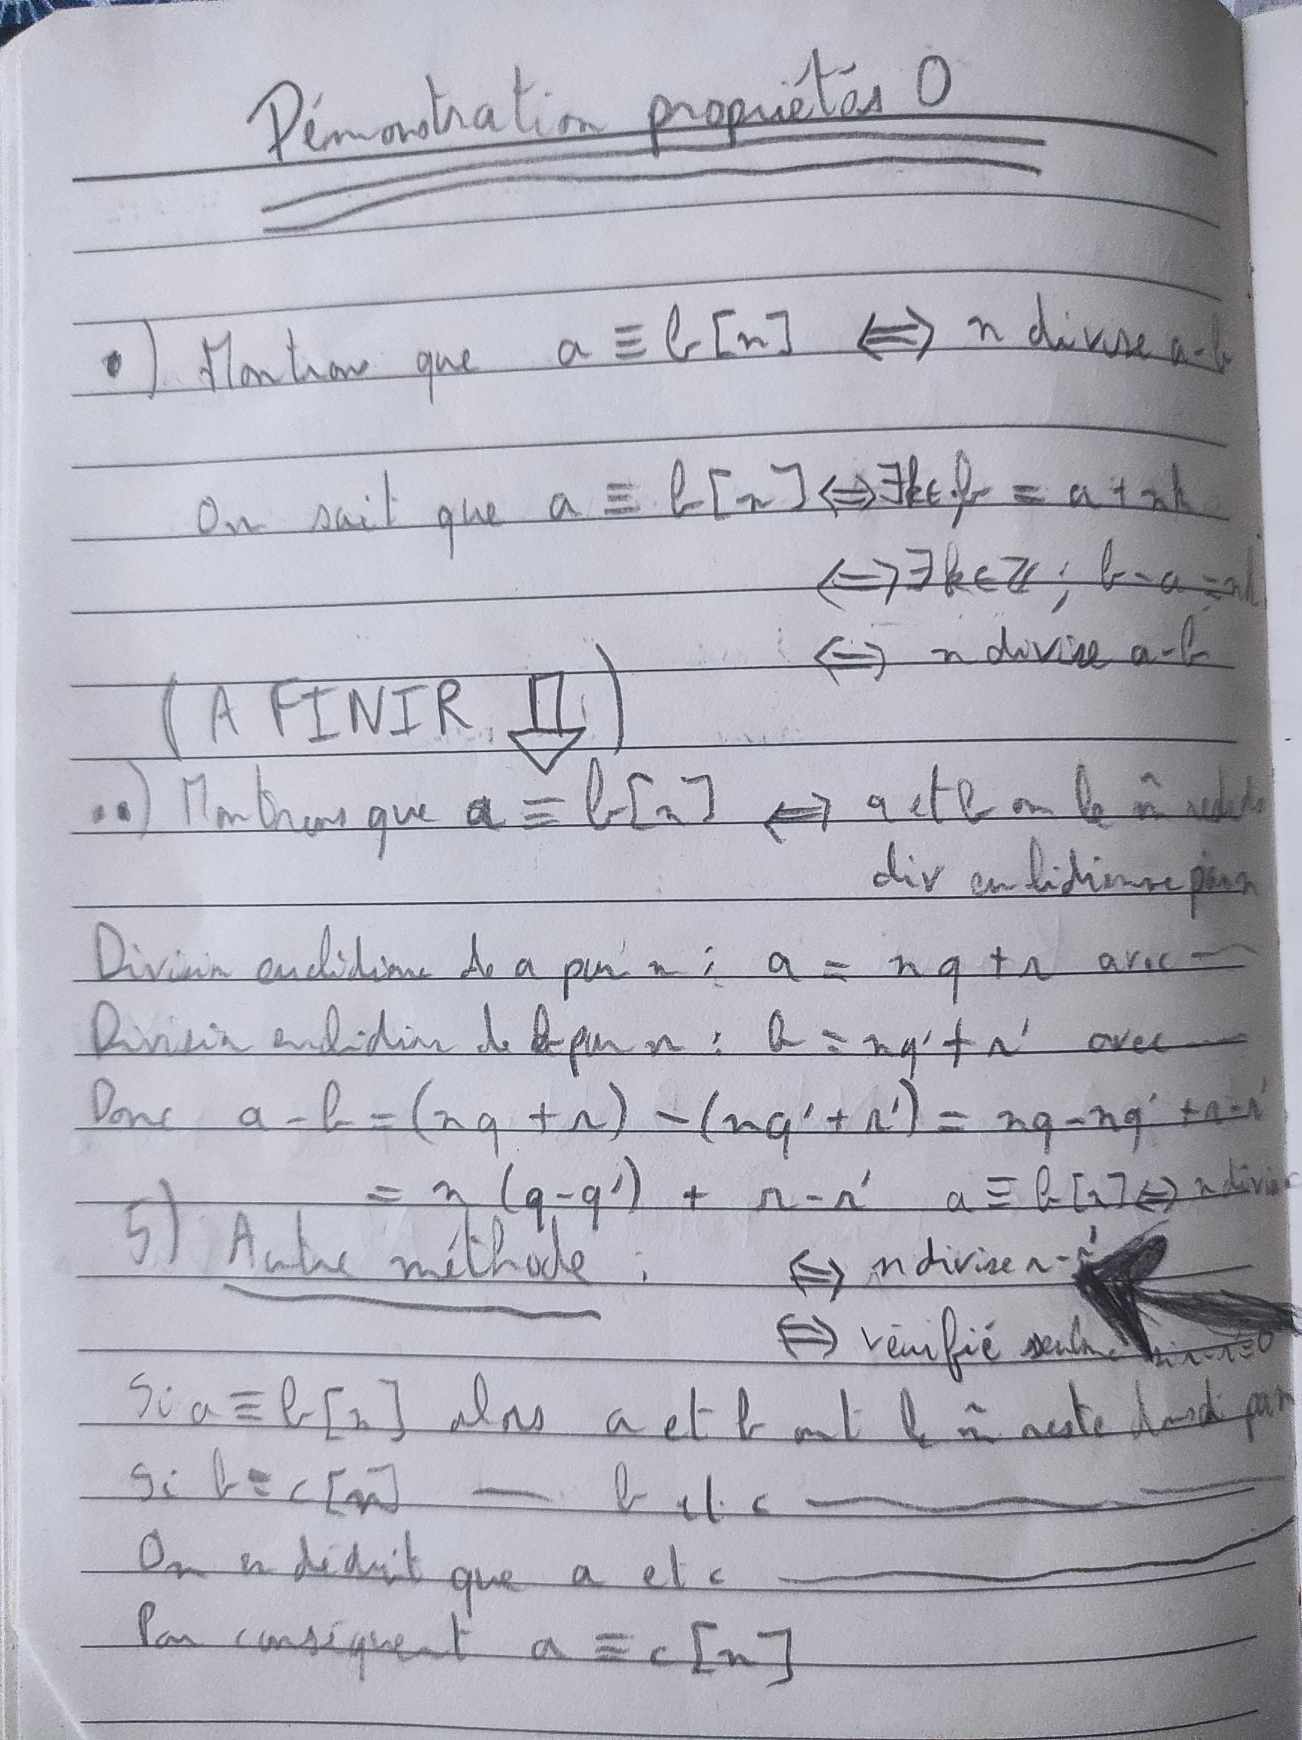 Démonstration propriétés 0
•) Montrons que a ≡ b [n] ⟺ n divise a-b
On sait que a ≡ b [n] ⟺ ∃k∈ b = a + nk
⟺ ∃k∈ℤ ; b-a = nk
⟺ n divise a-b
(A FINIR ⇩)
••) Montrons que a ≡ b [n] ⟺ a et b on le m̂
div euclidienne par n
Division euclidienne de a par n : a = nq + r avec —
Division euclidien de b par n : b = nq' + r' avec —
Donc a - b = (nq + r) - (nq' + r') = nq - nq' + r - r'
= n (q-q') + r - r' a ≡ b [n] ⟺ n divise
5) Autre méthode : ⟺ n divise r - r'
⟺ vérifié si r-r'=0
Si a ≡ b [n] alors a et b ont le m̂ reste par n
Si b ≡ c [n] — b et c —
On en déduit que a et c —
Par conséquent a ≡ c [n]